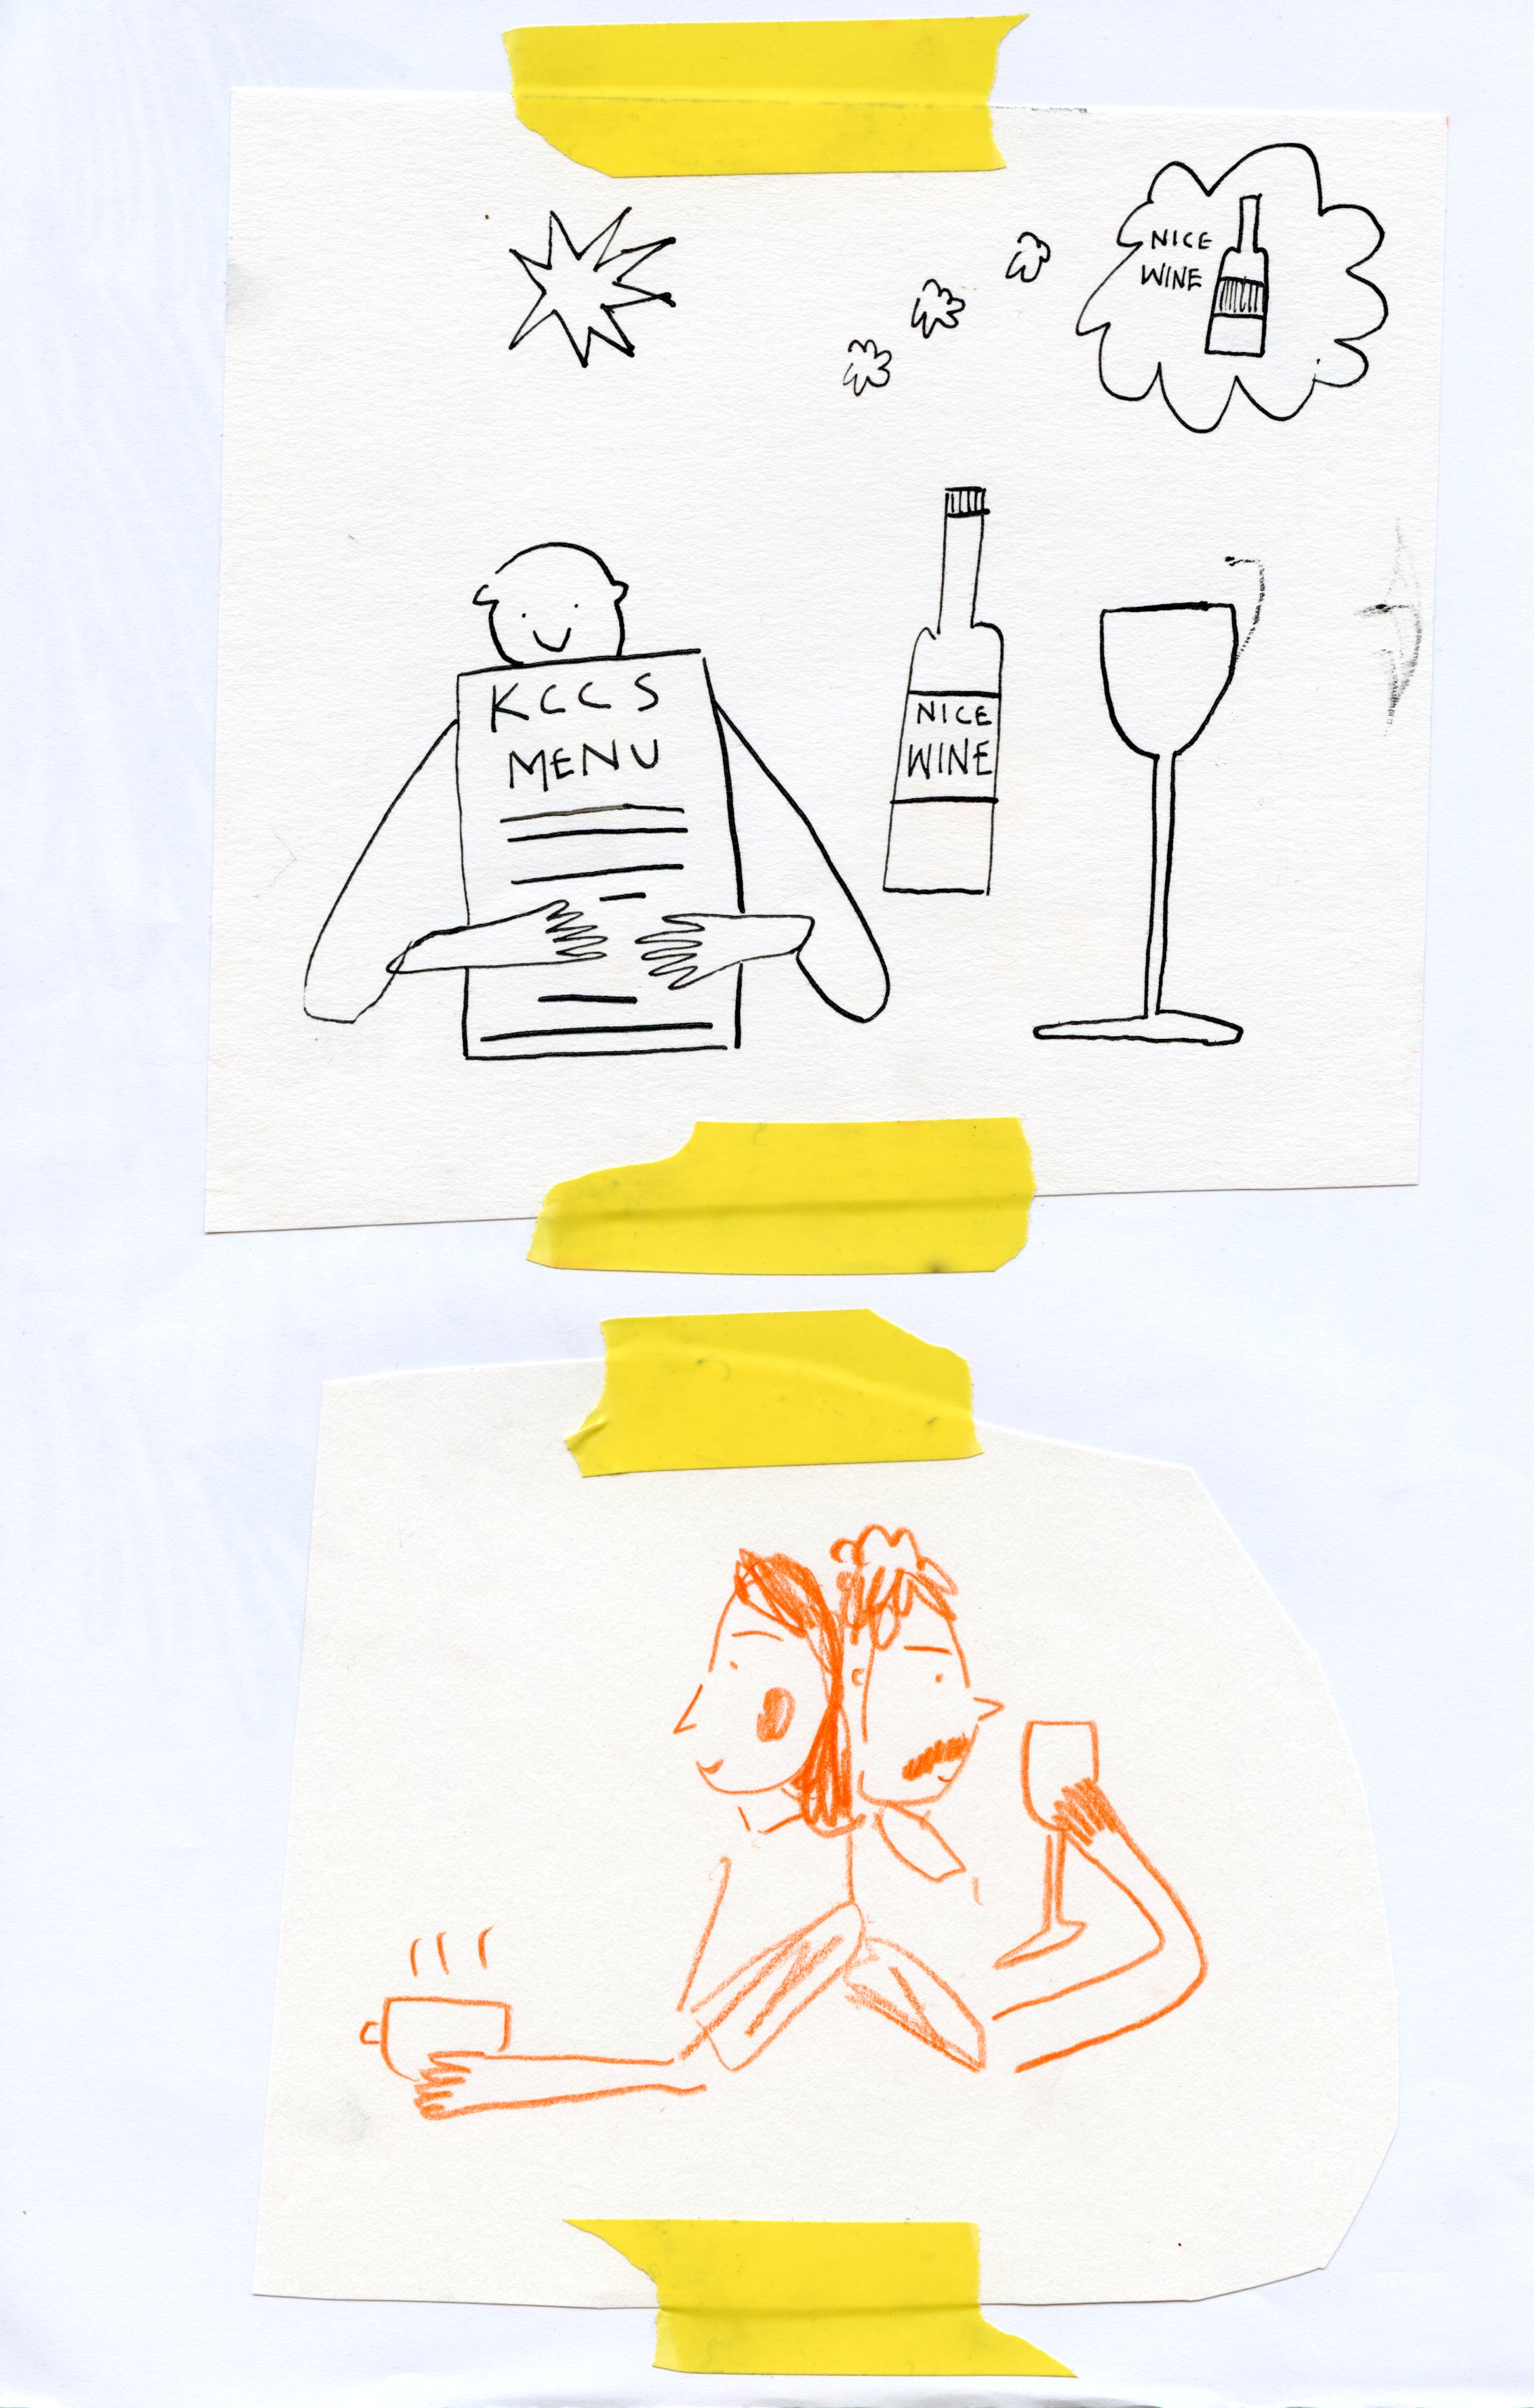 NICE
WINE
KCCS
MENU
NICE
WINE